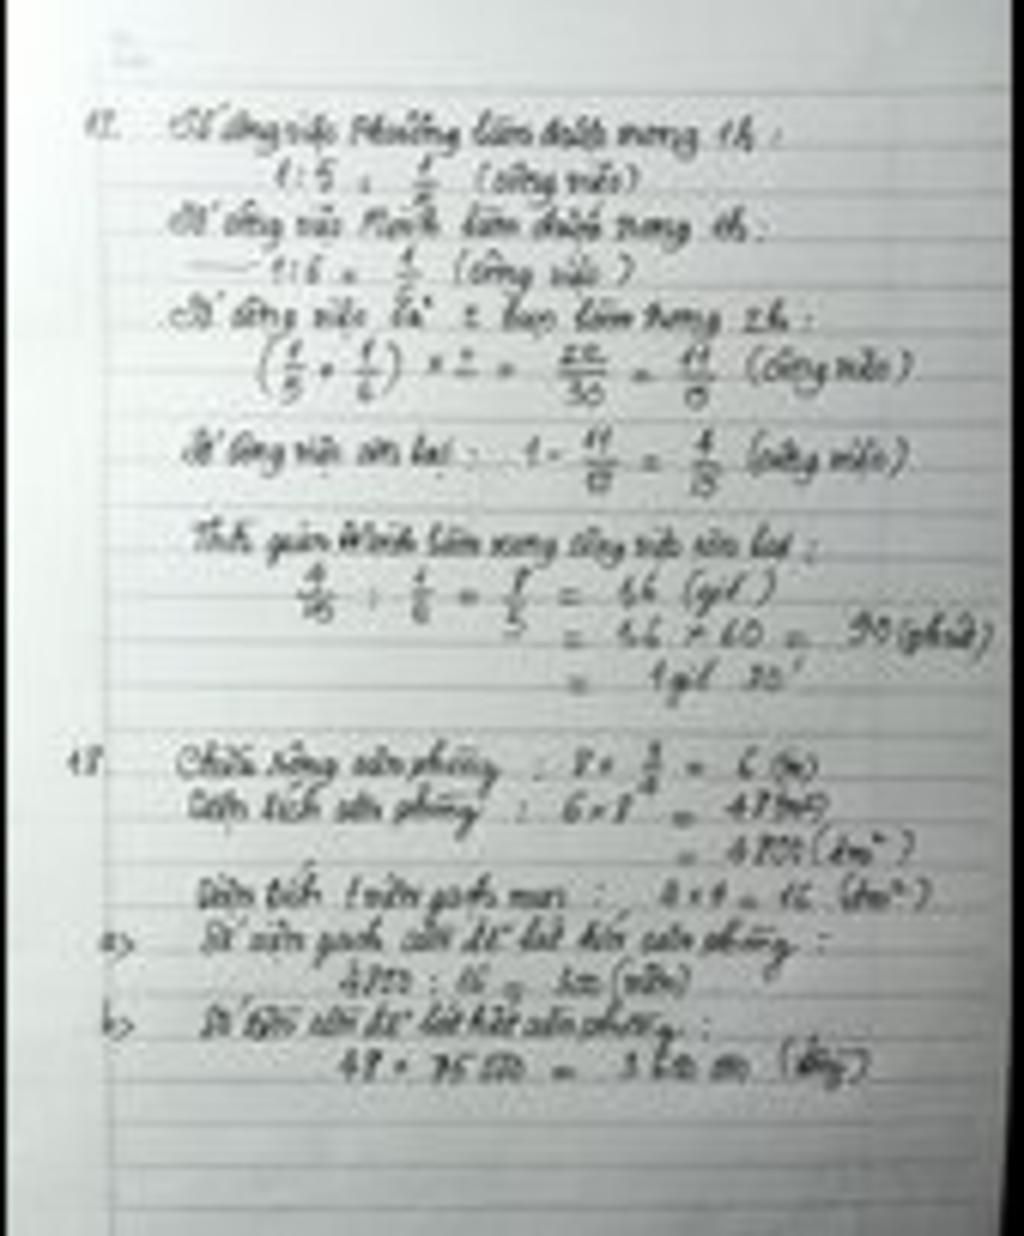 17. Số công việc Phường làm được trong 1h:
1:5 = 1/5 (công việc)
Số công việc Minh làm được trong 1h:
1:6 = 1/6 (công việc)
Số công việc cả 2 bạn làm trong 2h:
(1/5 + 1/6) × 2 = 22/30 = 11/15 (công việc)
Số công việc còn lại: 1 - 11/15 = 4/15 (công việc)
Thời gian Minh làm xong công việc còn lại:
4/15 : 1/6 = 8/5 = 1,6 (giờ)
= 1,6 × 60 = (phút)
= 1 giờ
18 Chiều rộng căn phòng: 8 × 3/4 = 6 (m)
Diện tích căn phòng: 6 × 8 = 48 (m²)
= 4800 (dm²)
Diện tích 1 viên gạch men: 4 × 4 = 16 (dm²)
a> Số viên gạch cần để lát kín căn phòng:
4800 : 16 = 300 (viên)
b> Số tiền cần để lát hết căn phòng:
48 × 75 000 = 3 600 000 (đồng)